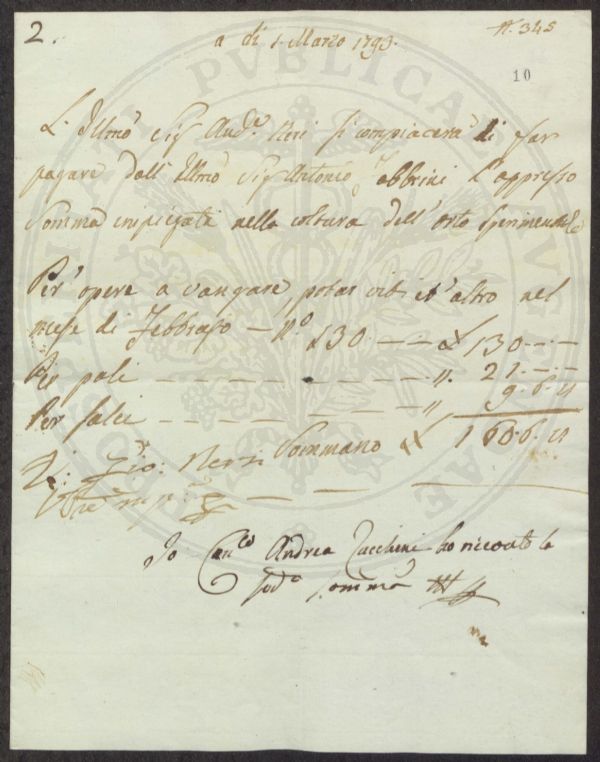 2.
N. 345
a dì 1. Marzo 1793.
10
L'Illmo Sig. Aud.e Neri si compiacerà di far
pagare dall' Illmo Sig. Antonio Fabbrini l'appresso
Somma impiegata nella coltura dell' orto Sperimentale
Per opere a vangare, potar viti et altro nel
mese di Febbrajo — N.o 130 — — 130 — —
Per pali — — — — — — — ". 21. — —
Per salci — — — — — — " 9. 6. 4
Sommano 160. 6. 4
V: Gio: Neri
Io Can.co Andrea Zucchini ho ricevuto la
sod.a somma
PUBLICAE